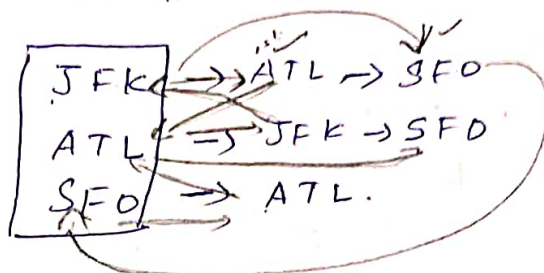 JFK → ATL → SFO
ATL → JFK → SFO
SFO → ATL.